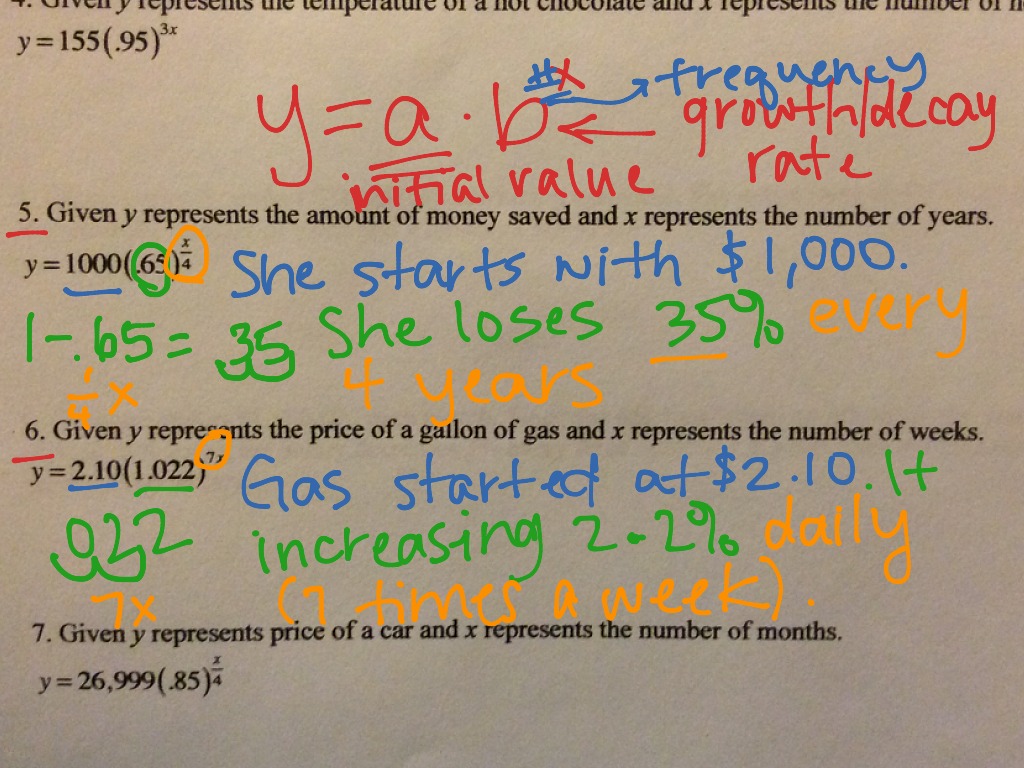 4. Given y represents the temperature of a hot chocolate and x represents the number of
y = 155(.95)^3x
y = a · b^#x → frequency
← growth/decay
initial value rate
5. Given y represents the amount of money saved and x represents the number of years.
y = 1000(.65)^x/4 She starts with $1,000.
1-.65 = .35 She loses 35% every
1/4 x 4 years
6. Given y represents the price of a gallon of gas and x represents the number of weeks.
y = 2.10(1.022)^7x Gas started at $2.10. It
.022 increasing 2.2% daily
7x (7 times a week).
7. Given y represents price of a car and x represents the number of months.
y = 26,999(.85)^x/4